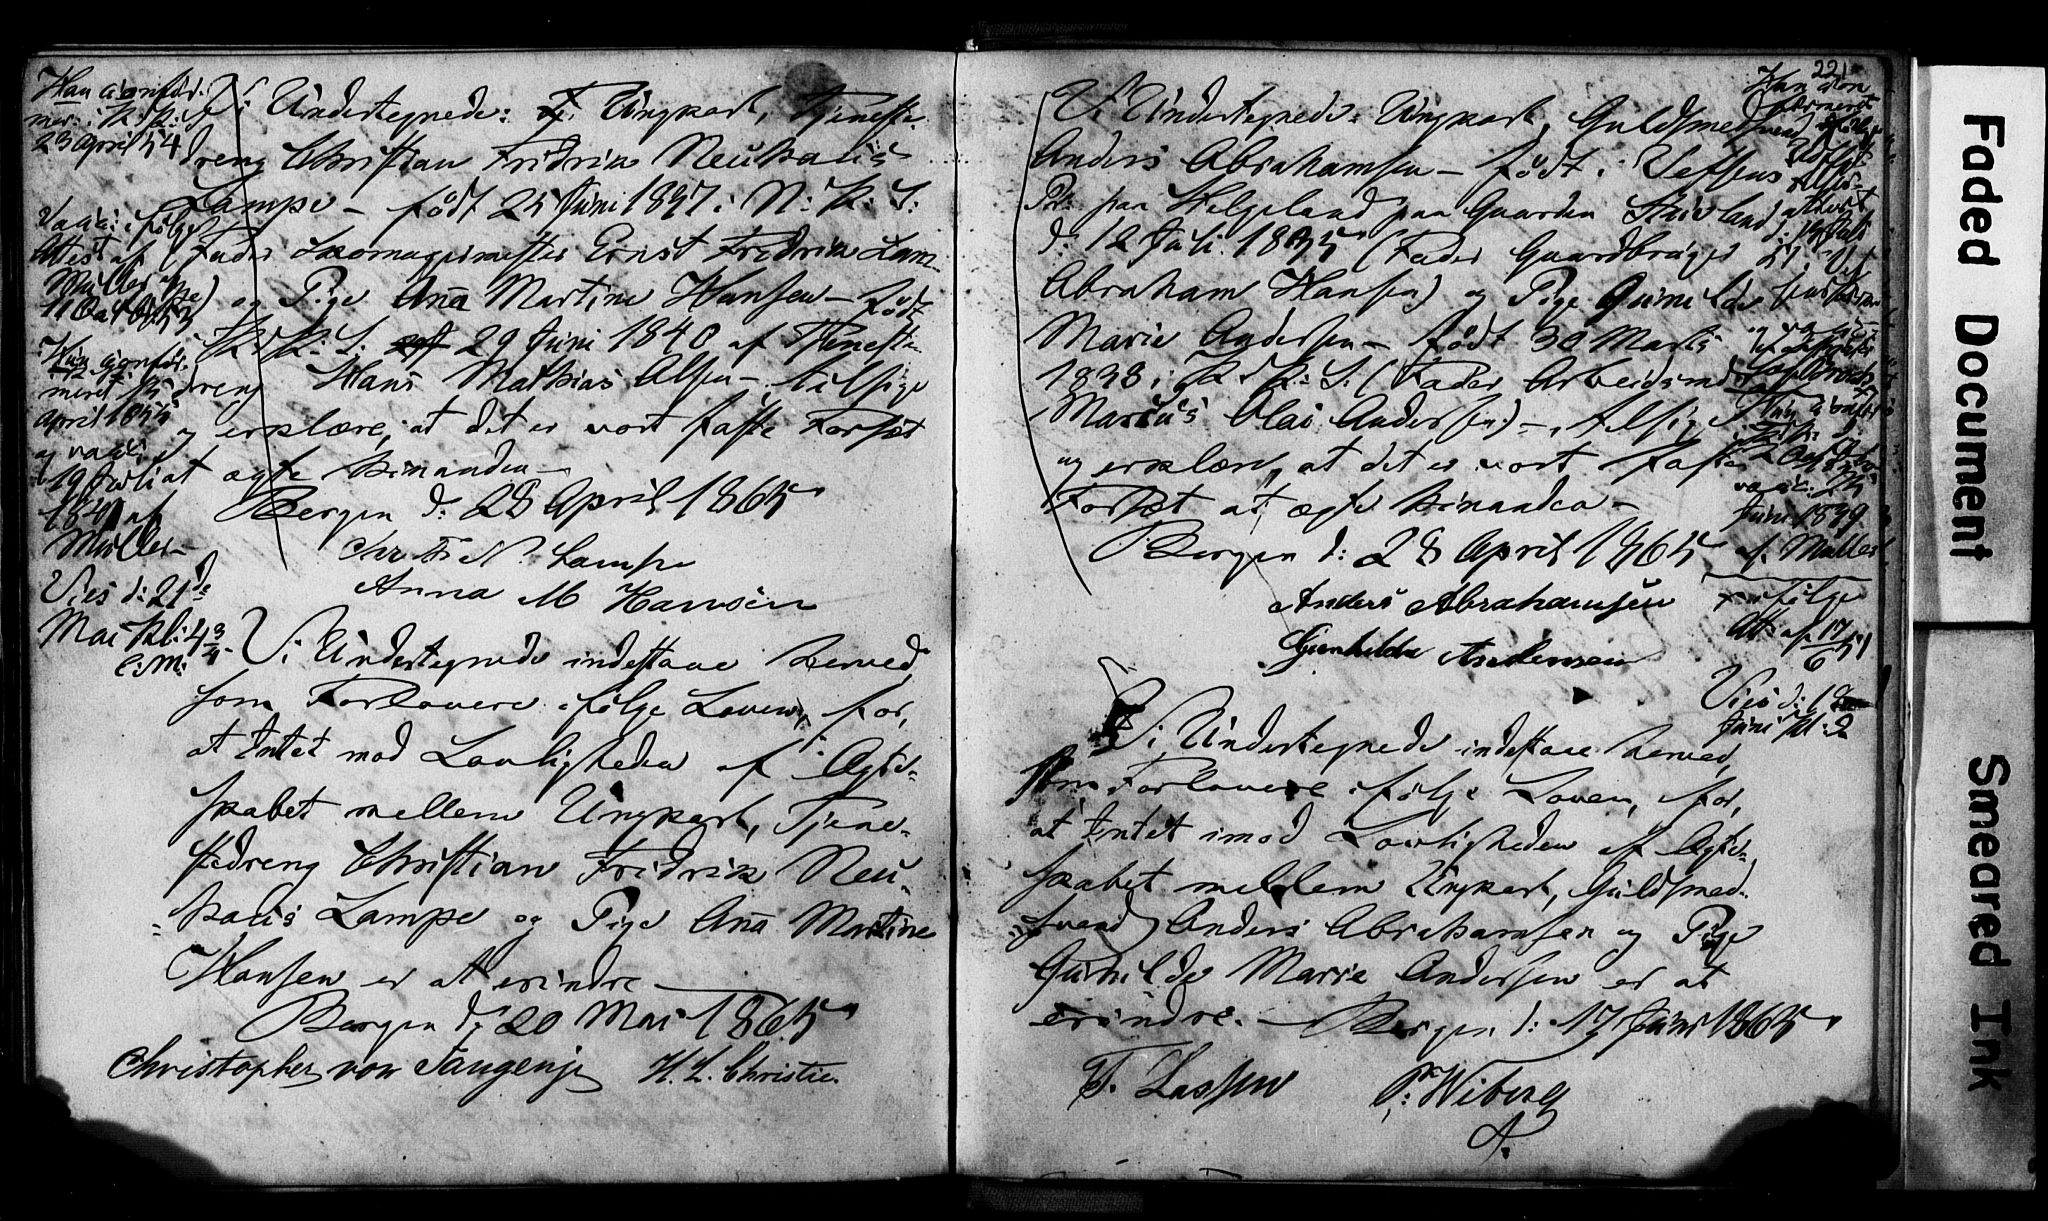 Han confir-
mer: i K: K: d:
23 April 54
Vacc: i følge
Attest af
Müller af
11 Oct 1853
Hun confir-
meret 15
April 1855
og vacc:
19 Juli
1841 af
Müller -
Vies d: 21de
Mai Kl: 4 3/4
E: M:
Vi Undertegnede: Ungkarl, Tjeneste-
dreng Christian Fridrik Neuhaus
Lampe - født 25 Juni 1837 i N: K: S:
(Fader Skomagermester Ernst Fredrik Lam-
pe) og Pige Ana Martine Hansen - født
i K: K: S: 29 Juni 1840 af Tjeneste-
dreng Hans Mathias Olsen - tilsige
og erklære, at det er vort faste Forsæt
at ægte hinanden -
Bergen d: 28 April 1865
Chr Fr N. Lampe
Anna M Hansen
Vi Undertegnede indestaae herved
som Forlovere i følge Loven, for,
at Intet mod Lovligheden af Ægte-
skabet mellem Ungkarl, Tjene-
stedreng Christian Fridrik Neu-
haus Lampe og Pige Ana Martine
Hansen er at erindre
Bergen d: 20 Mai 1865
Christopher von Tangen H. L. Christie.
221
Vi Undertegnede: Ungkarl, Guldsmedsvend
Anders Abrahamsen - født i Vefsens
Pr: paa Helgeland paa Gaarden
d: 12 Juli 1835 (Fader Gaardbruger
Abraham Hansen) og Pige Gunilde
Marie Andersen - født 30 Marts
1838 i K: K: S: (Fader Arbeidsmd
Marcus Olai Andersen) -, tilsige
og erklære, at det er vort faste
Forsæt at ægte hinanden -
Bergen d: 28 April 1865
Anders Abrahamsen
Gunhilde Andersen
Vi Undertegnede indestaae herved,
som Forlovere i følge Loven, for,
at Intet imod Lovligheden af Ægte-
skabet mellem Ungkarl, Guldsmed-
svend Anders Abrahamsen og Pige
Gunilde Marie Andersen er at
erindre. - Bergen d: 17 Juni 1865
T. Lassen P: Wiberg
Han con
firmeret
vacc: 25
Juni 1839
af Müller
i følge
Att: af 17/6 51
Vies d: 18
Juni Kl: 2
Faded Document
Smeared Ink